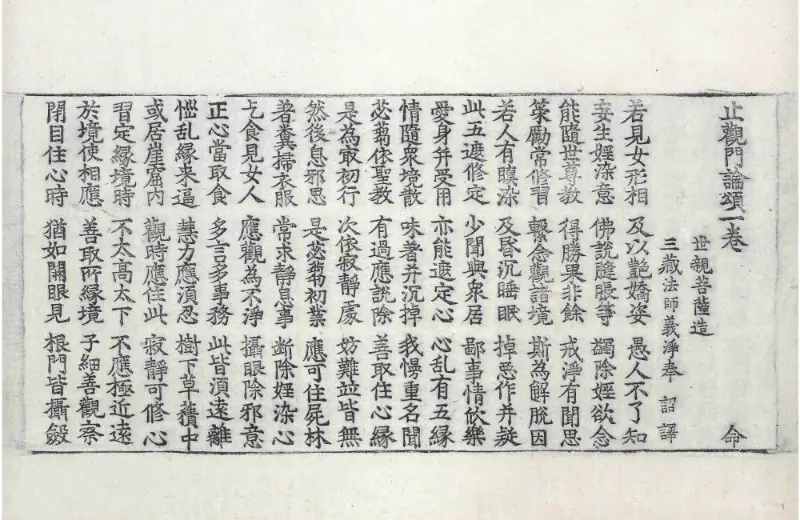 止觀門論頌一卷 命
世親菩薩造
三藏法師義淨奉 詔 譯
若見女形相 及以艶嬌姿 愚人不了知
妄生婬染意 佛說膖脹等 獨除婬欲念
能隨世尊教 得勝果非餘 戒淨有聞思
策勵常修習 繫念觀諸境 斯為解脫因
若人有瞋染 及昏沉睡眠 掉惡作并疑
此五遮修定 少聞與衆居 鄙事情忻樂
愛身并受用 亦能遮定心 心乱有五縁
情隨衆境散 味著并沉掉 我慢重名聞
苾芻依聖教 有過應說除 善取住心縁
是為㝡初行 次依寂靜處 妨難並皆無
然後息邪思 是苾芻初業 應可住屍林
著糞掃衣服 常求靜息事 斷除婬染心
乞食見女人 應觀為不淨 攝眼除邪意
正心當取食 多言多事務 此皆湏遠離
惱乱縁来逼 慧力應湏忍 樹下草䕺中
或居崖窟内 觀時應住此 寂靜可修心
習定縁境時 不太高太下 不應極近遠
於境使相應 善取所縁境 子細善觀察
閉目住心時 猶如開眼見 根門皆攝斂